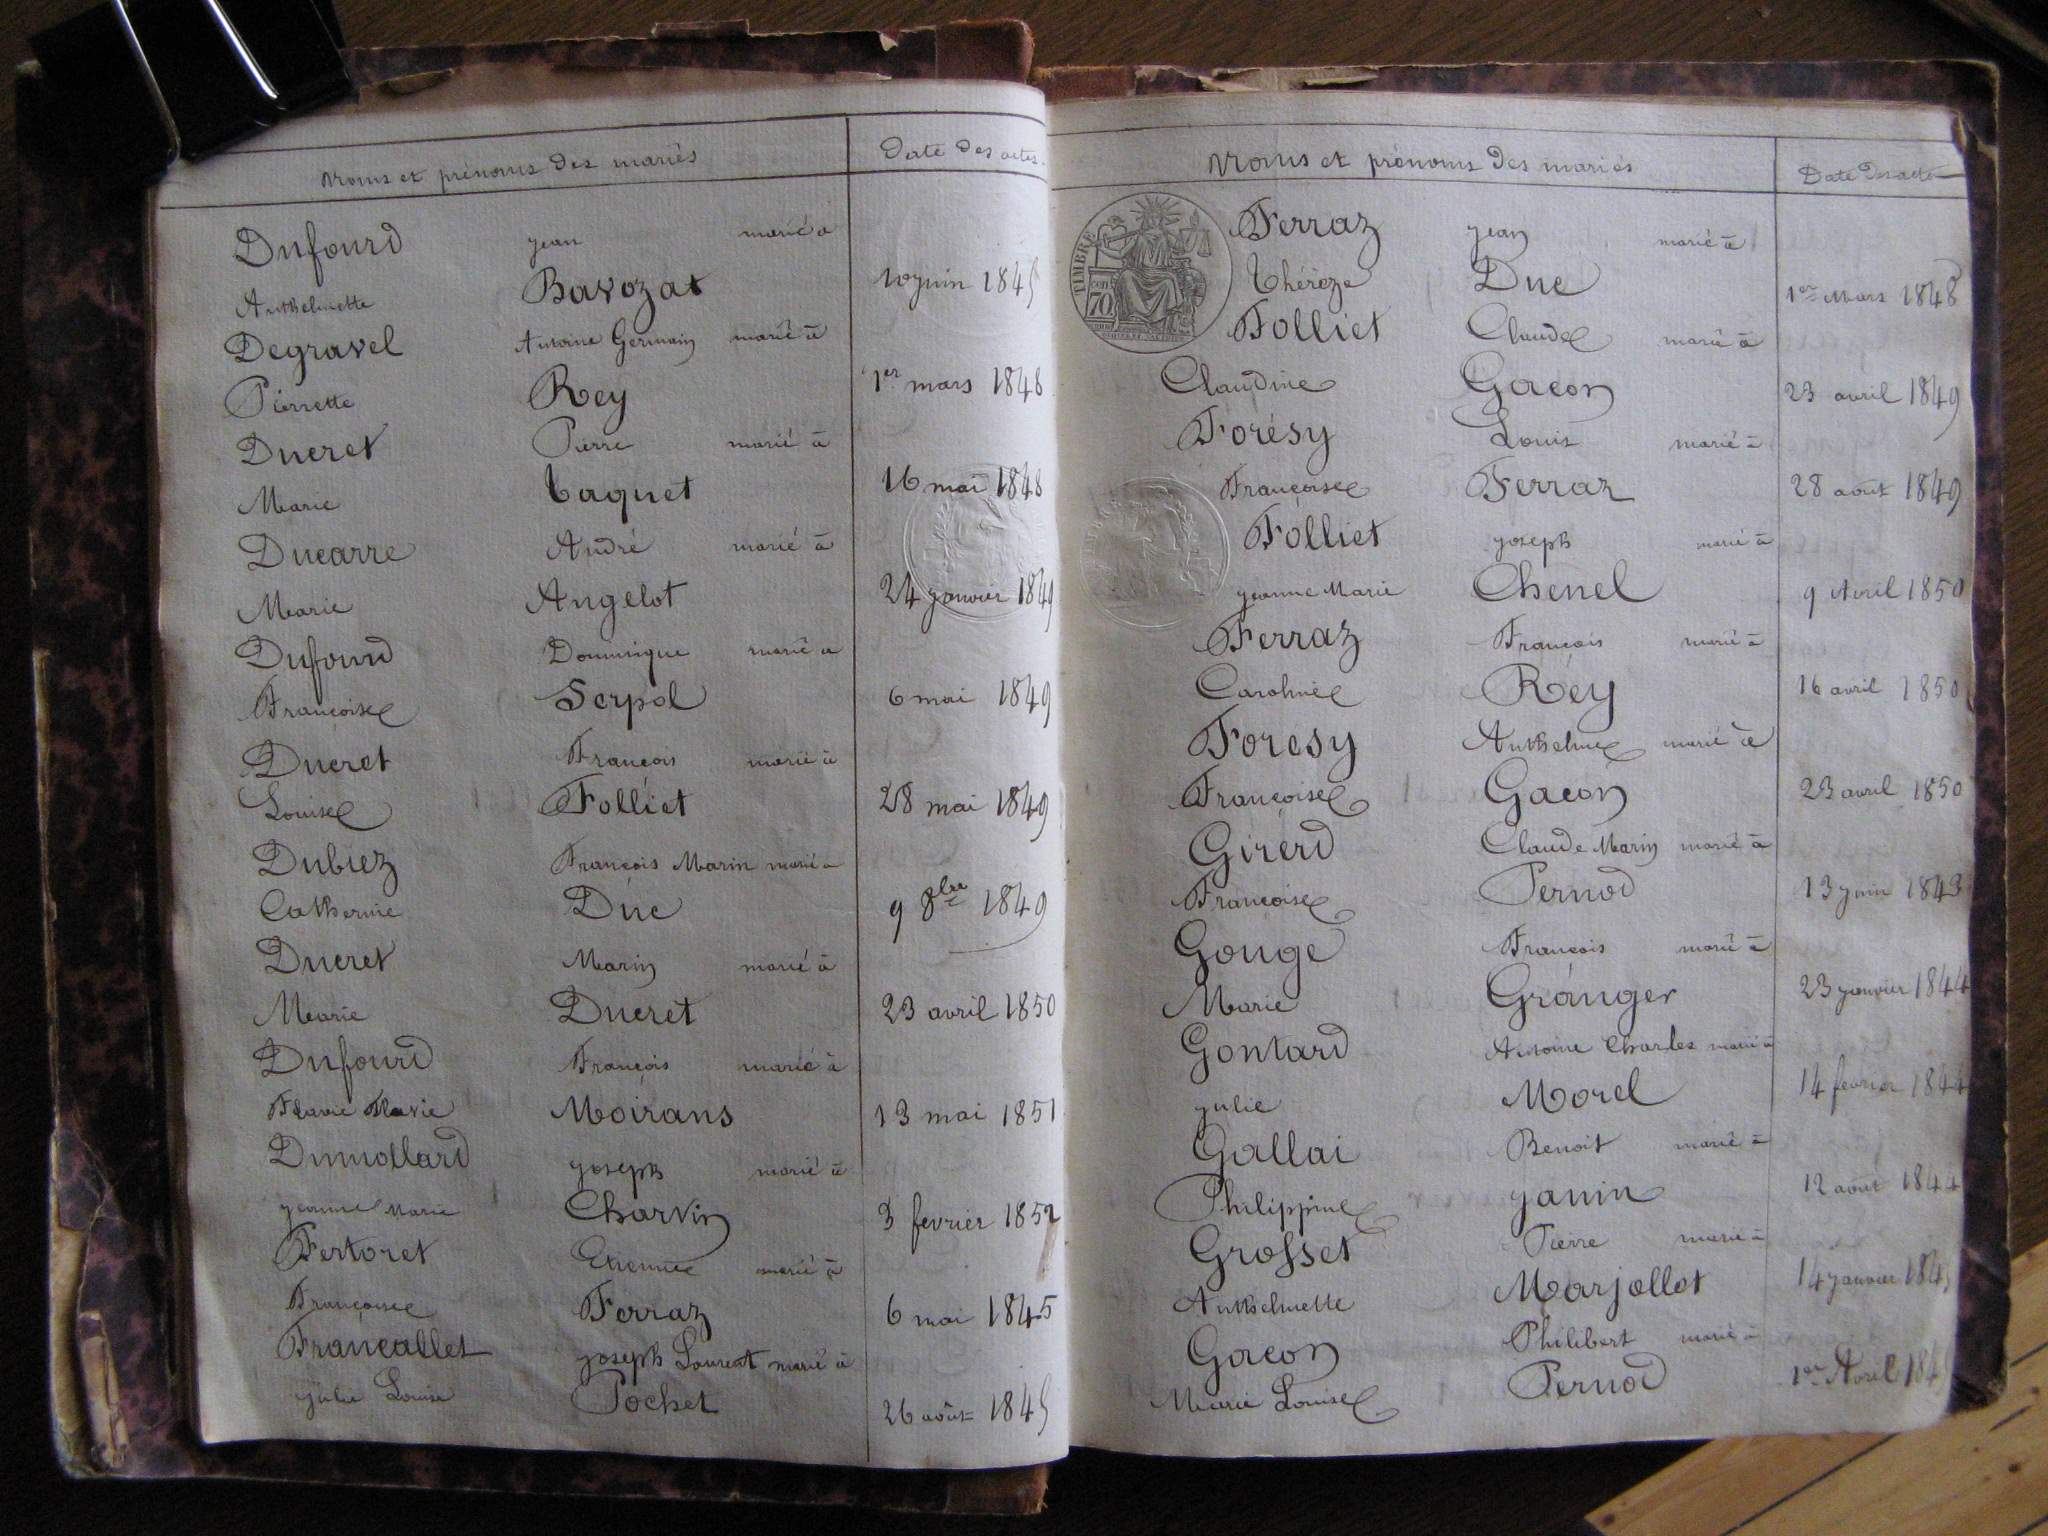 Noms et prénoms des mariés Date des actes
Dufourd jean marié à
Anthelmette Bavozat 10 juin 1845
Degravel Antoine Germain marié à
Pierrette Rey 1er mars 1848
Ducret Pierre marié à
Marie Taquet 16 mai 1848
Ducarre André marié à
Marie Angelot 24 janvier 1849
Dufourd Dominique marié à
Françoise Serpol 6 mai 1849
Ducret François marié à
Louise Folliet 28 mai 1849
Dubiez François Marin marié à
Catherine Duc 9 8bre 1849
Ducret Marin marié à
Marie Ducret 23 avril 1850
Dufourd François marié à
Flavie Marie Moirans 13 mai 1851
Dumollard joseph marié à
jeanne Marie Charvin 3 fevrier 1852
Fertoret Etienne marié à
Françoise Ferraz 6 mai 1845
Françallet joseph Laurent marié à
julie Louise Pochet 26 août 1845
Noms et prénoms des mariés Date des actes
TIMBRE
70
Ferraz jean marié à
Thérèze Duc 1er Mars 1848
Folliet Claude marié à
Claudine Gacon 23 avril 1849
Forésy Louis marié à
Françoise Ferraz 28 août 1849
Folliet joseph marié à
jeanne Marie Chenel 9 Avril 1850
Ferraz François marié à
Caroline Rey 16 avril 1850
Foresy Anthelme marié à
Françoise Gacon 23 avril 1850
Girerd Claude Marin marié à
Françoise Pernod 13 juin 1843
Gouge François marié à
Marie Granger 23 janvier 1844
Gontard Antoine Charles marié à
julie Morel 14 fevrier 1844
Gallai Benoit marié à
Philippine janin 12 août 1844
Grosset Pierre marié à
Anthelmette Marjollet 14 janvier 1845
Gacon Philibert marié à
Marie Louise Pernod 1er Avril 184